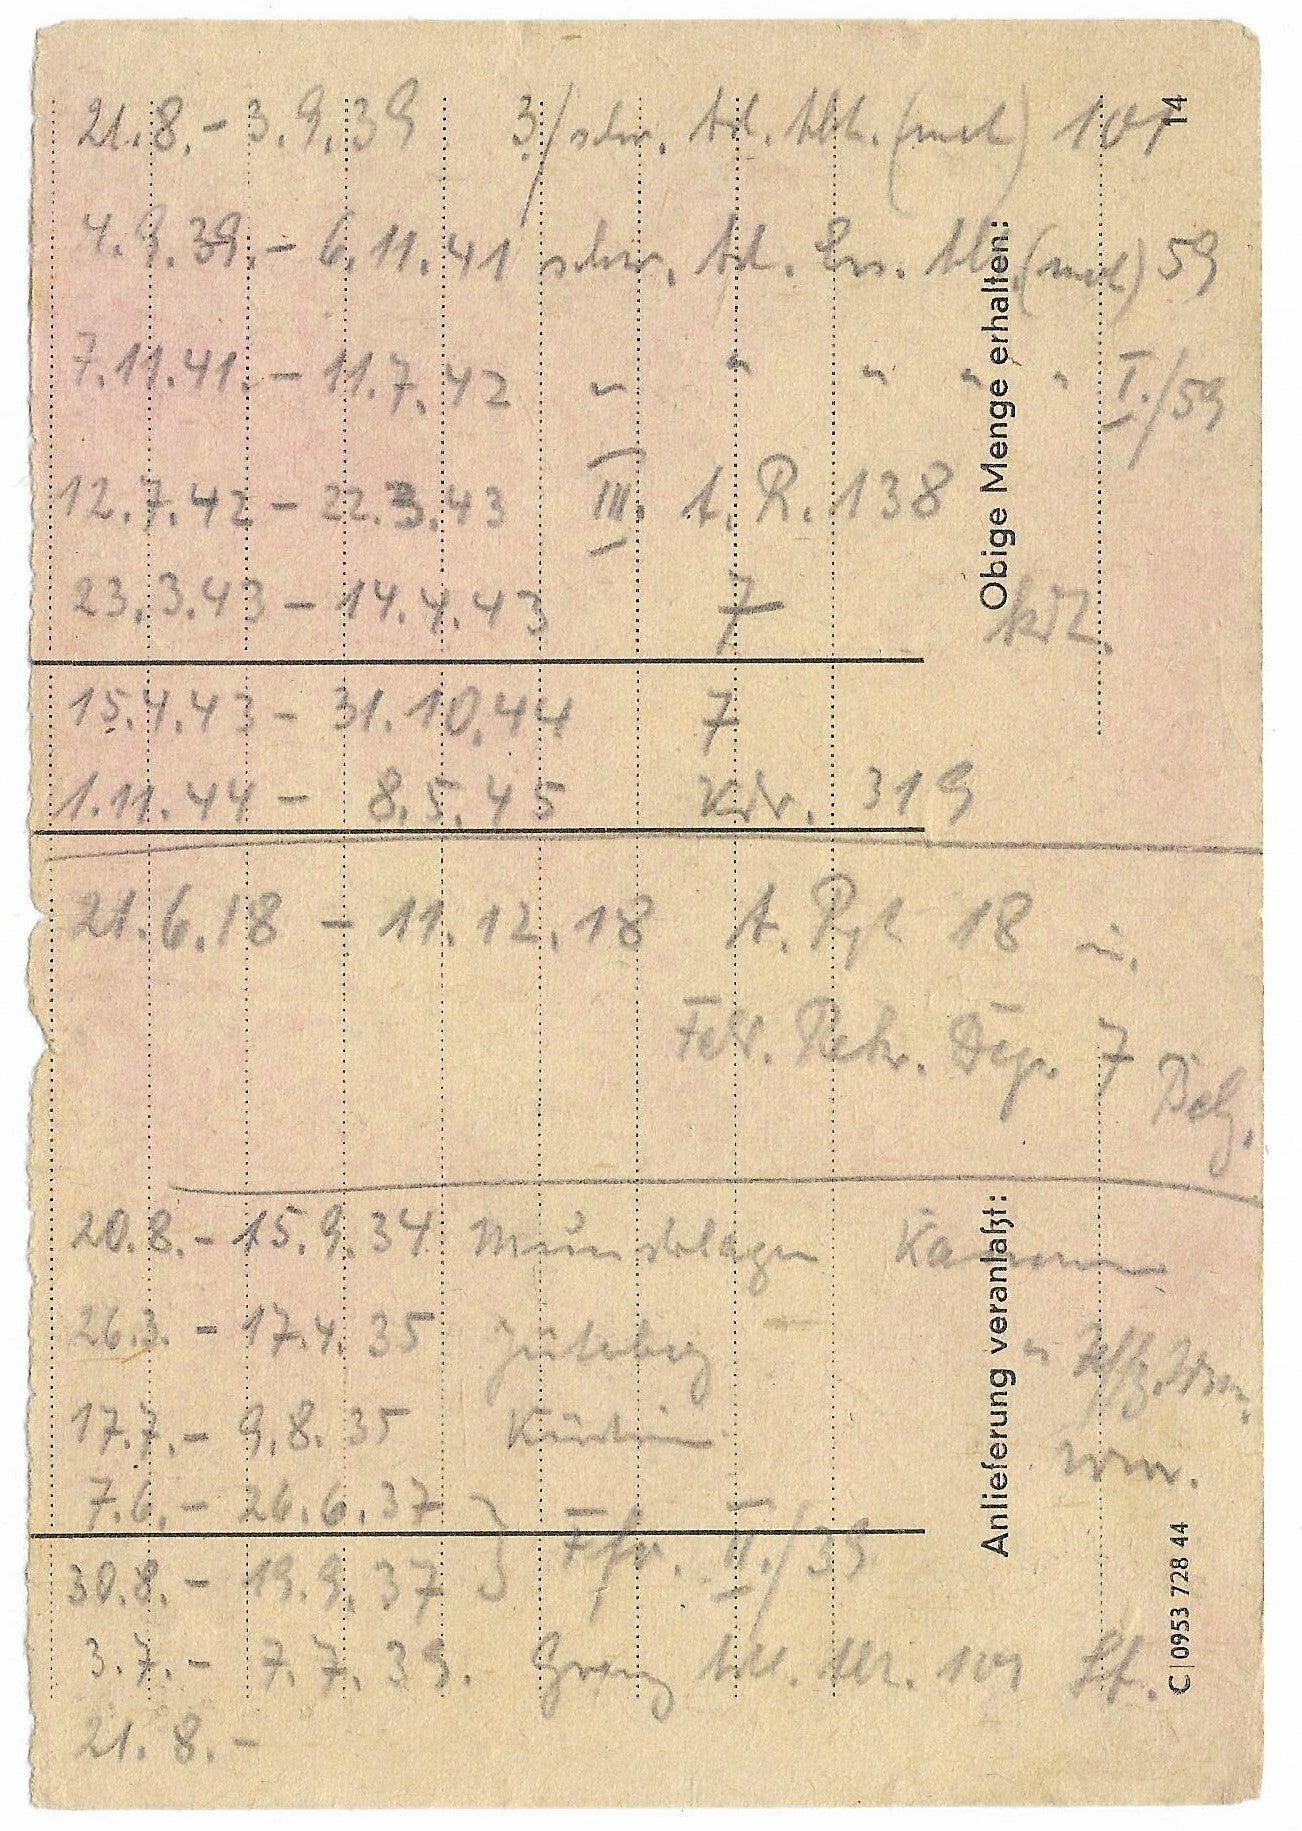 21.8. - 3.9.39 3./schw. Art. Abt. (mot) 101
14
4.9.39. - 6.11.41 schw. Art. Ers. Abt. (mot) 59
Obige Menge erhalten:
7.11.41. - 11.7.42 " " " " " I./59
12.7.42 - 22.3.43 III. A.R. 138
23.3.43 - 14.4.43 7
15.4.43 - 31.10.44 7
1.11.44 - 8.5.45 Kdr. 319
21.6.18 - 11.12.18 A. Rgt 18 u.
Feld. Rekr. Dep. 7 Belg.
20.8. - 15.9.34 Munsterlager
Anlieferung veranlaßt:
26.3. - 17.4.35 Jüterbog
17.7. - 9.8.35 Küstrin
7.6. - 26.6.37 } Ffo. II./39
30.8. - 19.9.37
3.7. - 7.7.39. Grenz
C|0953 728 44
21.8. -